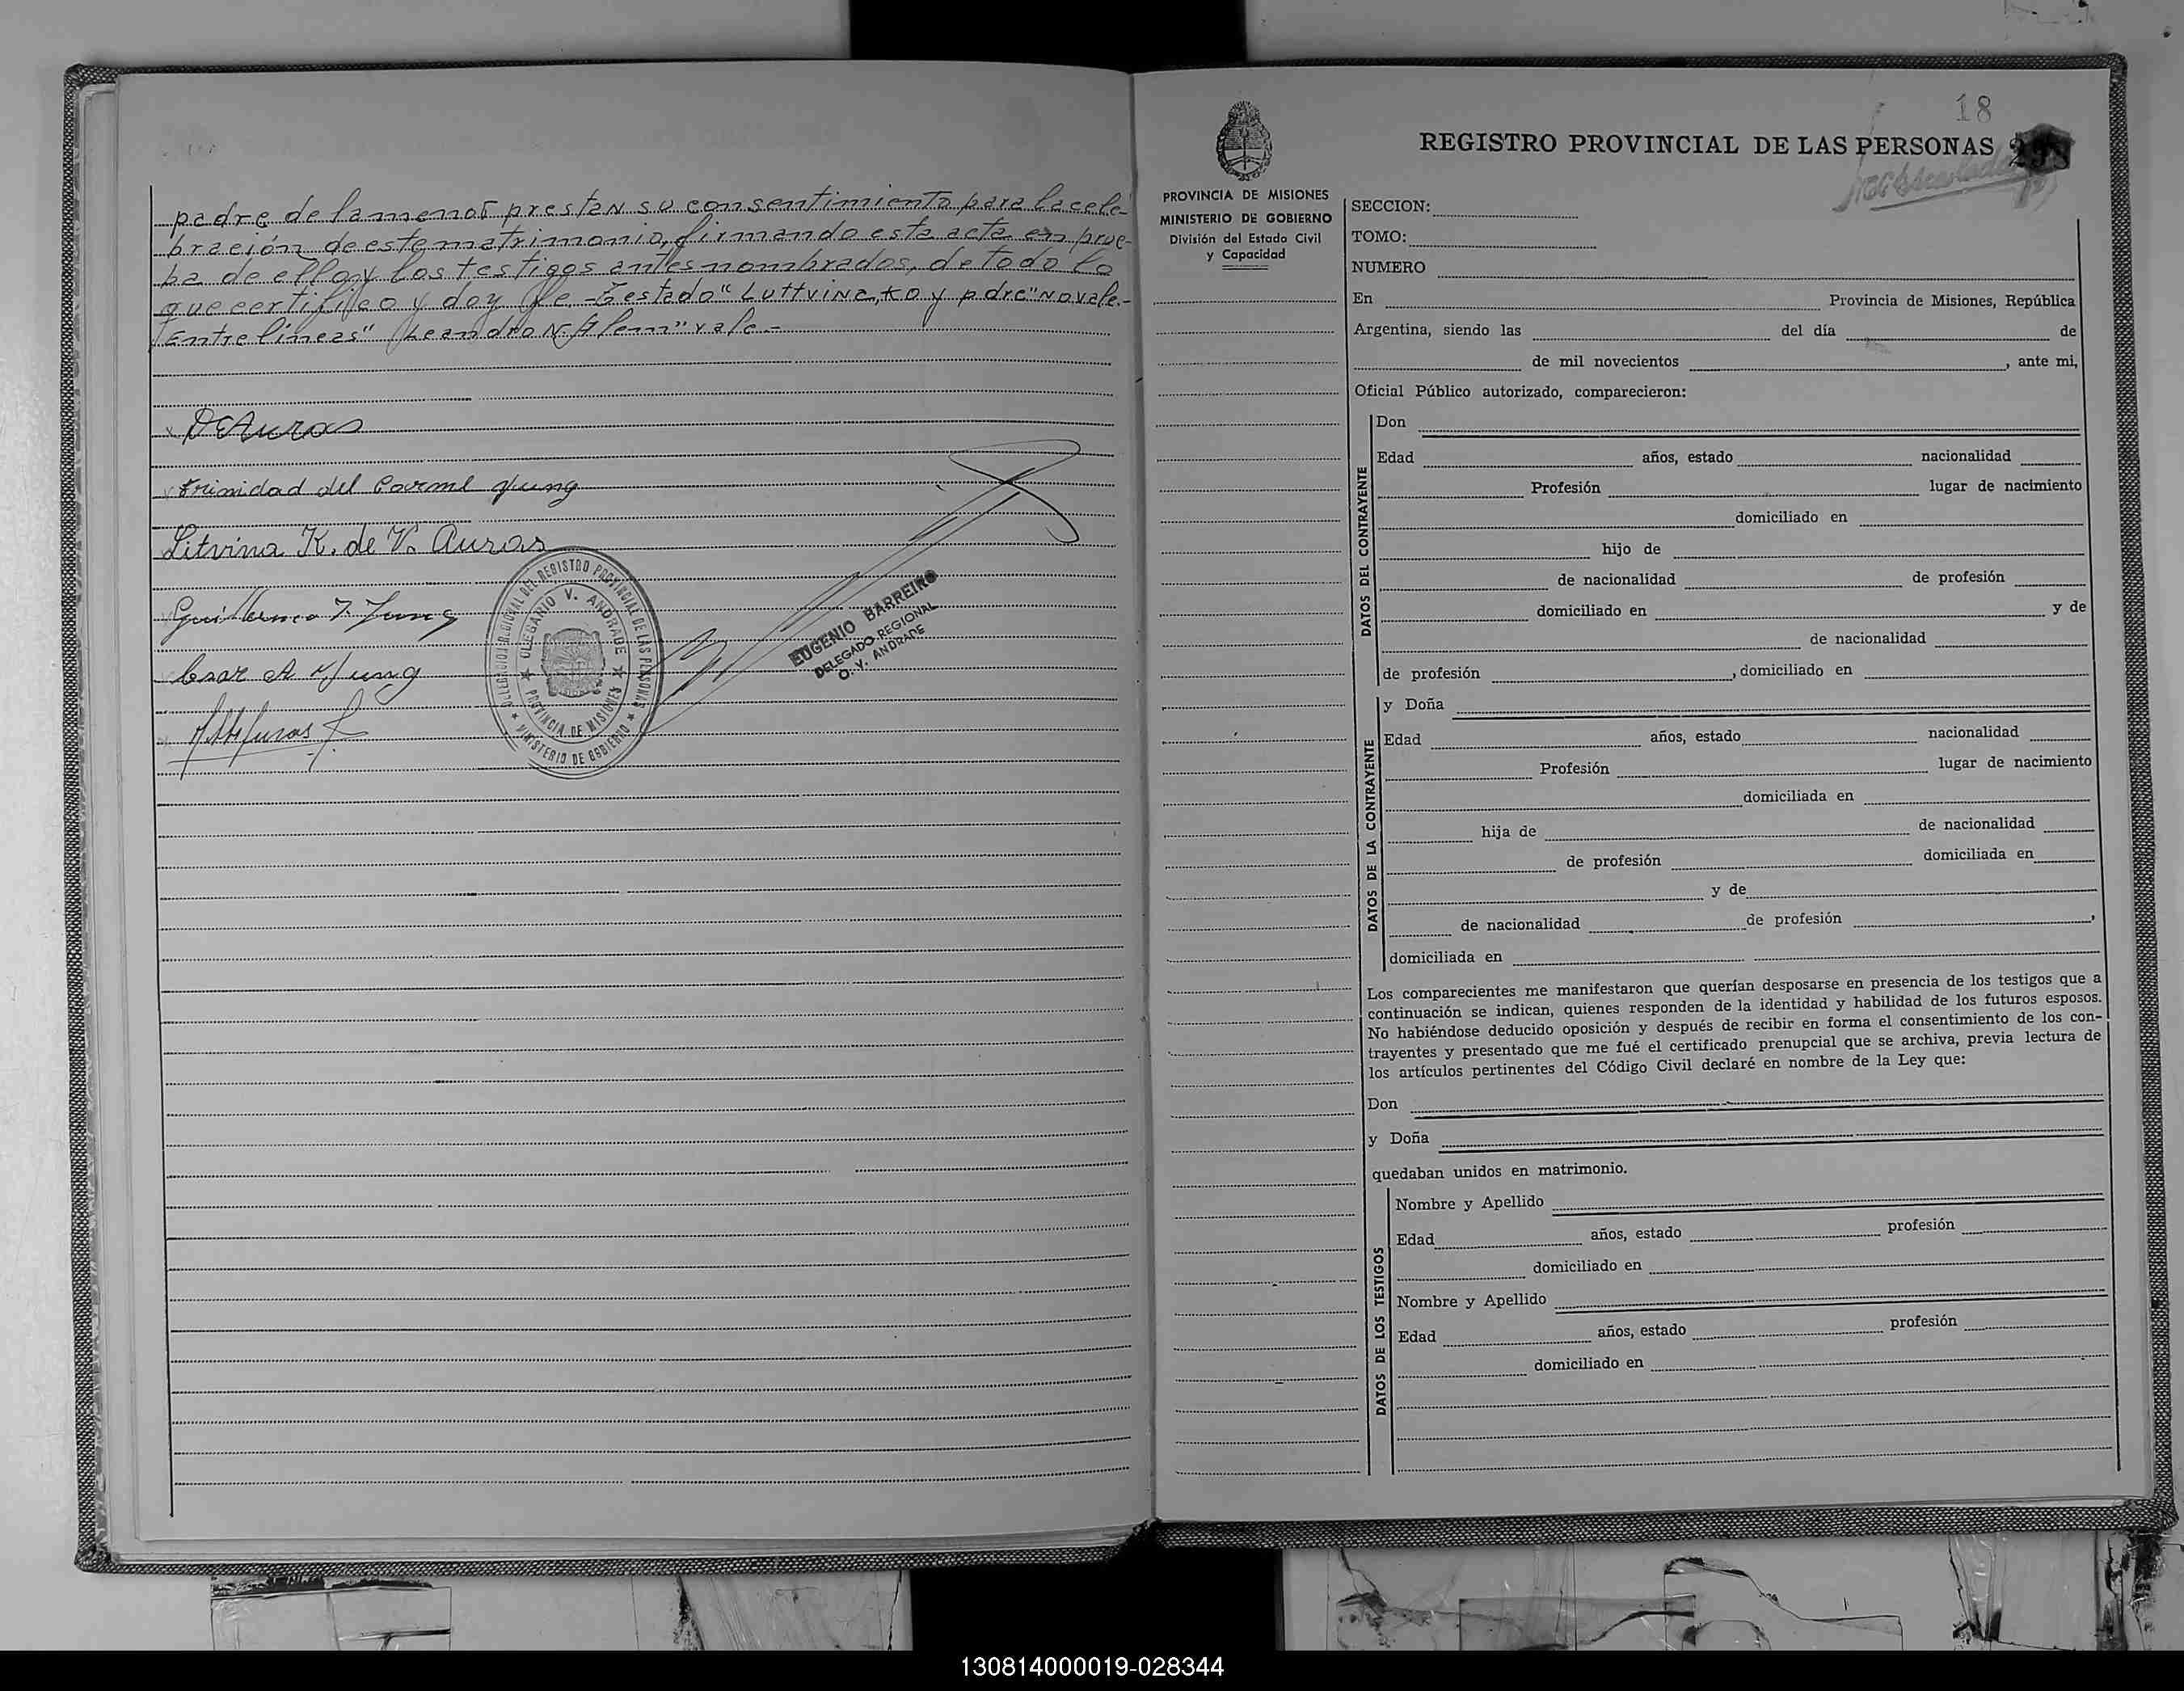 padre de la menor prestan su consentimiento para la cele-
bración de este matrimonio, firmando esta acta en prue-
ba de ello y los testigos antes nombrados, de todo lo
que certifico y doy fe.- Testado "Luttvina, KO y pdre" No vale.-
Entre líneas "Leandro N. Alem" vale.-
Trinidad del Carmel Jung
Litvina K. de V. Auras
Guillermo J. Jung
Cesar A Jung
DELEGACION REGIONAL DEL REGISTRO PROVINCIAL DE LAS PERSONAS
MINISTERIO DE GOBIERNO
OLEGARIO V. ANDRADE
PROVINCIA DE MISIONES
EUGENIO BARREIRO
DELEGADO REGIONAL
O. V. ANDRADE
18
REGISTRO PROVINCIAL DE LAS PERSONAS
PROVINCIA DE MISIONES
MINISTERIO DE GOBIERNO
División del Estado Civil
y Capacidad
SECCION:
TOMO:
NUMERO
En Provincia de Misiones, República
Argentina, siendo las del día de
de mil novecientos , ante mi,
Oficial Público autorizado, comparecieron:
DATOS DEL CONTRAYENTE
Don
Edad años, estado nacionalidad
Profesión lugar de nacimiento
domiciliado en
hijo de
de nacionalidad de profesión
domiciliado en y de
de nacionalidad
de profesión , domiciliado en
DATOS DE LA CONTRAYENTE
y Doña
Edad años, estado nacionalidad
Profesión lugar de nacimiento
domiciliada en
hija de de nacionalidad
de profesión domiciliada en
y de
de nacionalidad de profesión ,
domiciliada en
Los comparecientes me manifestaron que querían desposarse en presencia de los testigos que a
continuación se indican, quienes responden de la identidad y habilidad de los futuros esposos.
No habiéndose deducido oposición y después de recibir en forma el consentimiento de los con-
trayentes y presentado que me fué el certificado prenupcial que se archiva, previa lectura de
los artículos pertinentes del Código Civil declaré en nombre de la Ley que:
Don
y Doña
quedaban unidos en matrimonio.
DATOS DE LOS TESTIGOS
Nombre y Apellido
Edad años, estado profesión
domiciliado en
Nombre y Apellido
Edad años, estado profesión
domiciliado en
130814000019-028344